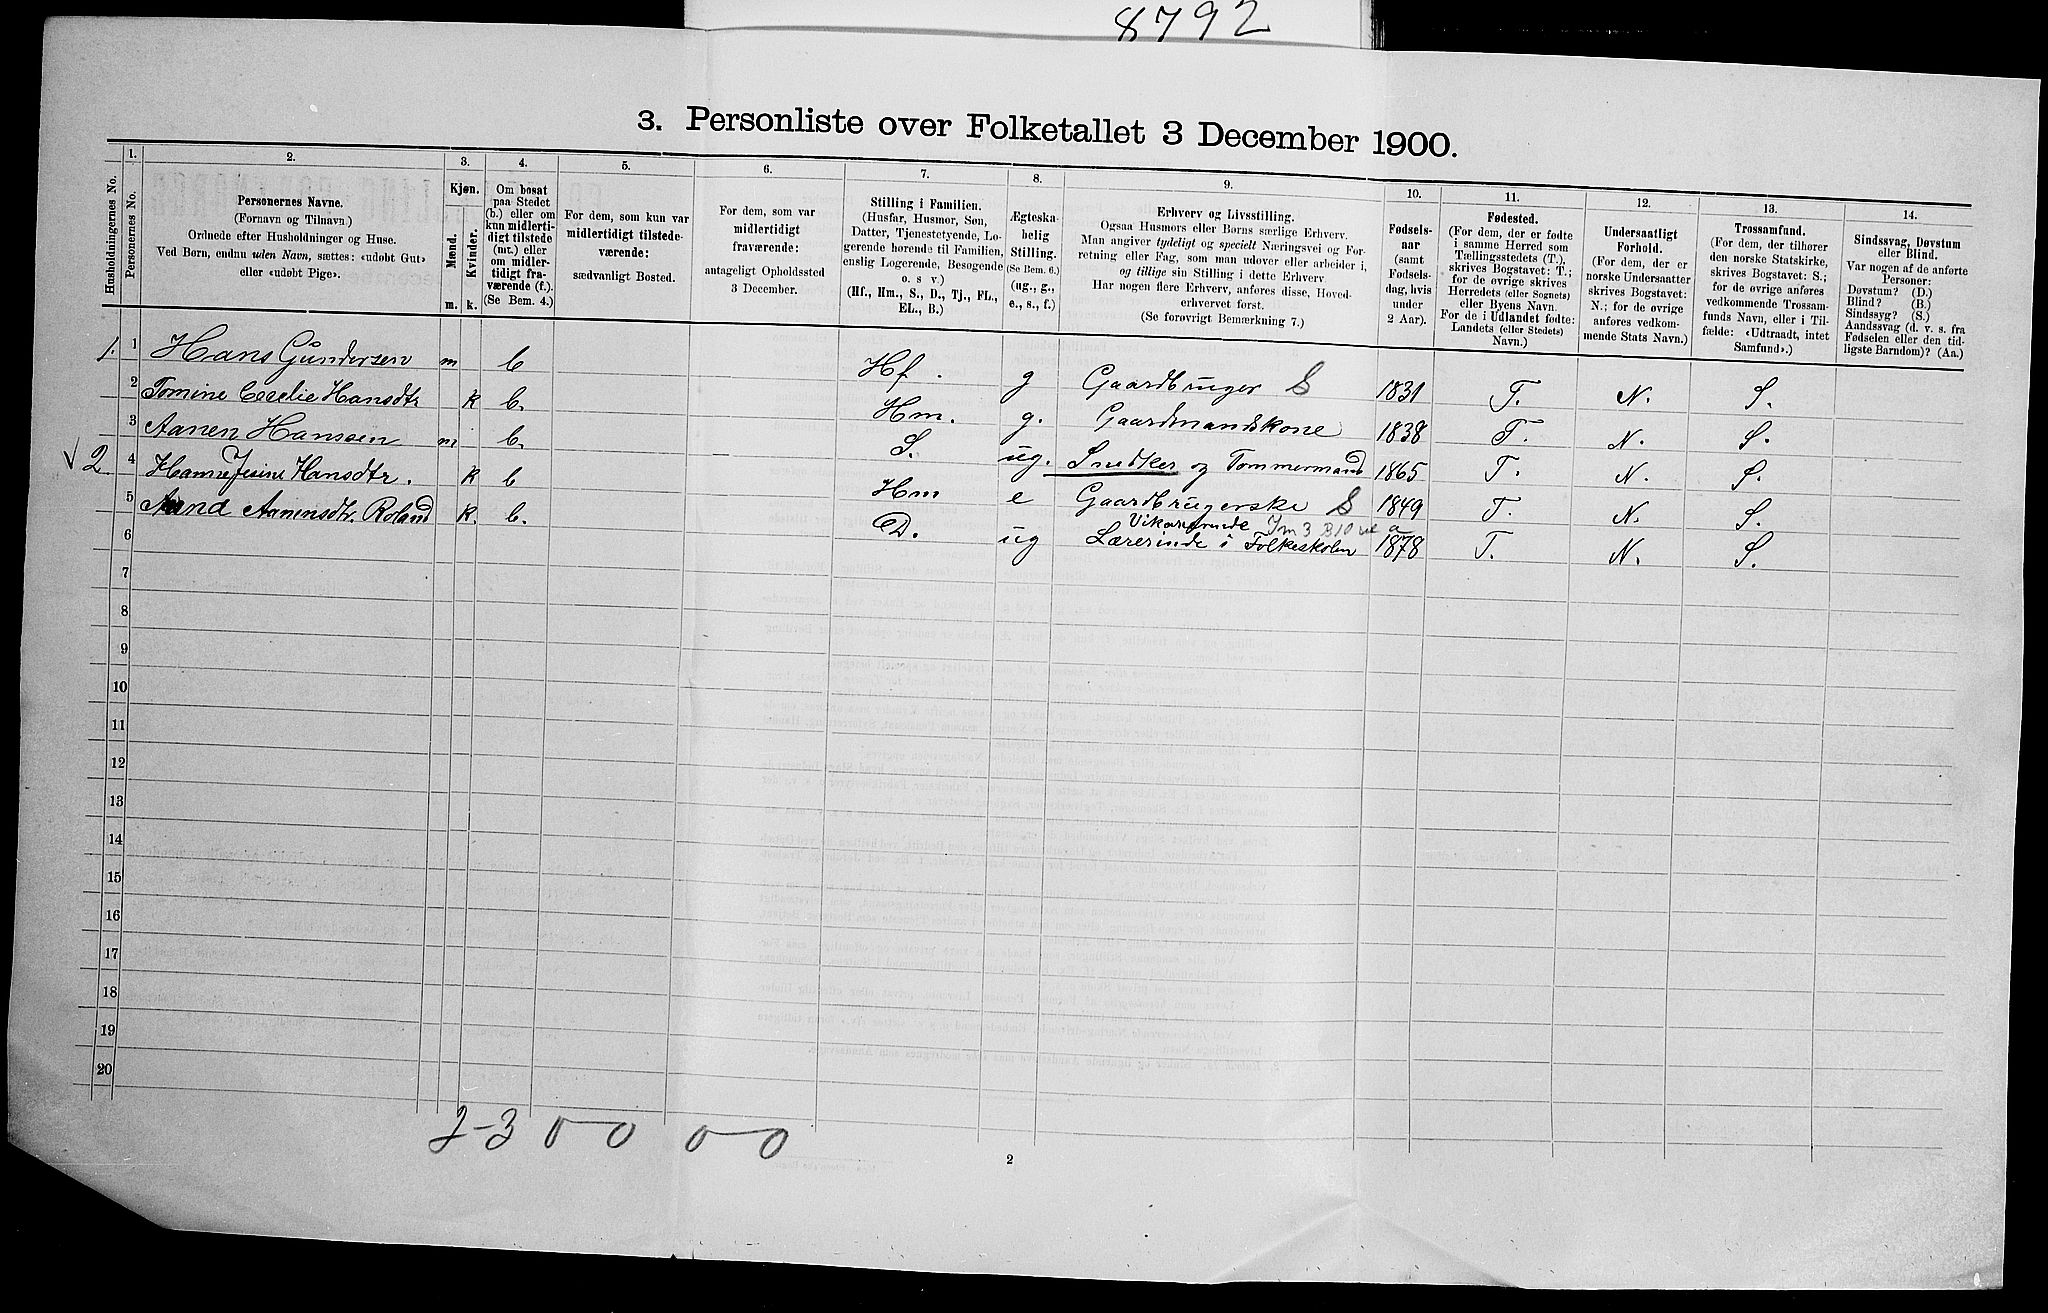 8792
3. Personliste over Folketallet 3 December 1900.
Husholdningernes No.
1.
Personernes No.
2.
Personernes Navne.
(Fornavn og Tilnavn.)
Ordnede efter Husholdninger og Huse.
Ved Børn, endnu uden Navn, sættes: «udøbt Gut»
eller «udøbt Pige».
3.
Kjøn.
Mænd.
Kvinder.
m. k.
4.
Om bosat
paa Stedet
(b.) eller om
kun midlerti-
digt tilstede
(mt.) eller
om midler-
tidigt fra-
værende (f.).
(Se Bem. 4.)
5.
For dem, som kun var
midlertidigt tilstede-
værende:
sædvanligt Bosted.
6.
For dem, som var
midlertidigt
fraværende:
antageligt Opholdssted
3 December.
7.
Stilling i Familien.
(Husfar, Husmor, Søn,
Datter, Tjenestetyende, Lo-
gerende hørende til Familien,
enslig Logerende, Besøgende
o. s v.)
(Hf., Hm., S., D., Tj., FL.,
EL., B.)
8.
Ægteska-
belig
Stilling.
(Se Bem. 6.)
(ug., g.,
e., s., f.)
9.
Erhverv og Livsstilling.
Ogsaa Husmors eller Børns særlige Erhverv.
Man angiver tydeligt og specielt Næringsvei og For-
retning eller Fag, som man udøver eller arbeider i,
og tillige sin Stilling i dette Erhverv.
Har nogen flere Erhverv, anføres disse, Hoved-
erhvervet først.
(Se forøvrigt Bemærkning 7.)
10.
Fødsels-
aar
(samt
Fødsels-
dag, hvis
under
2 Aar).
11.
Fødested.
(For dem, der er fødte
i samme Herred som
Tællingsstedets (T.),
skrives Bogstavet: T.;
for de øvrige skrives
Herredets (eller Sognets)
eller Byens Navn.
For de i Udlandet fødte:
Landets (eller Stedets)
Navn.)
12.
Undersaatligt
Forhold.
(For dem, der er
norske Undersaatter
skrives Bogstavet:
N.; for de øvrige
anføres vedkom-
mende Stats Navn.)
13.
Trossamfund.
(For dem, der tilhører
den norske Statskirke,
skrives Bogstavet: S.;
for de øvrige anføres
vedkommende Trossam-
funds Navn, eller i Til-
fælde: «Udtraadt, intet
Samfund».)
14.
Sindssvag, Døvstum
eller Blind.
Var nogen af de anførte
Personer:
Døvstum? (D.)
Blind? (B.)
Sindssyg? (S.)
Aandssvag (d. v. s. fra
Fødselen eller den tid-
ligste Barndom)? (Aa.)
1. 1 Hans Gundersen m b Hf. g Gaardbruger S 1831 T. N. S.
2 Tomine Cecelie Hansdtr k b. Hm. g. Gaardmandskone 1838 T. N. S.
3 Aanen Hanssen m b. S. ug. Snedker og Tømmermand 1865 T. N. S.
√ 2 4 Hanne Jesine Hansdtr. k b Hm e Gaardbrugerske S 1849 T. N. S.
Vikarierende
5 Aanensdtr. Roland k. b. D. ug Lærerinde i Folkeskolen 1878 T. N. S.
6
7
8
9
10
11
12
13
14
15
16
17
18
19
20
2-3 0 0 0-0
2